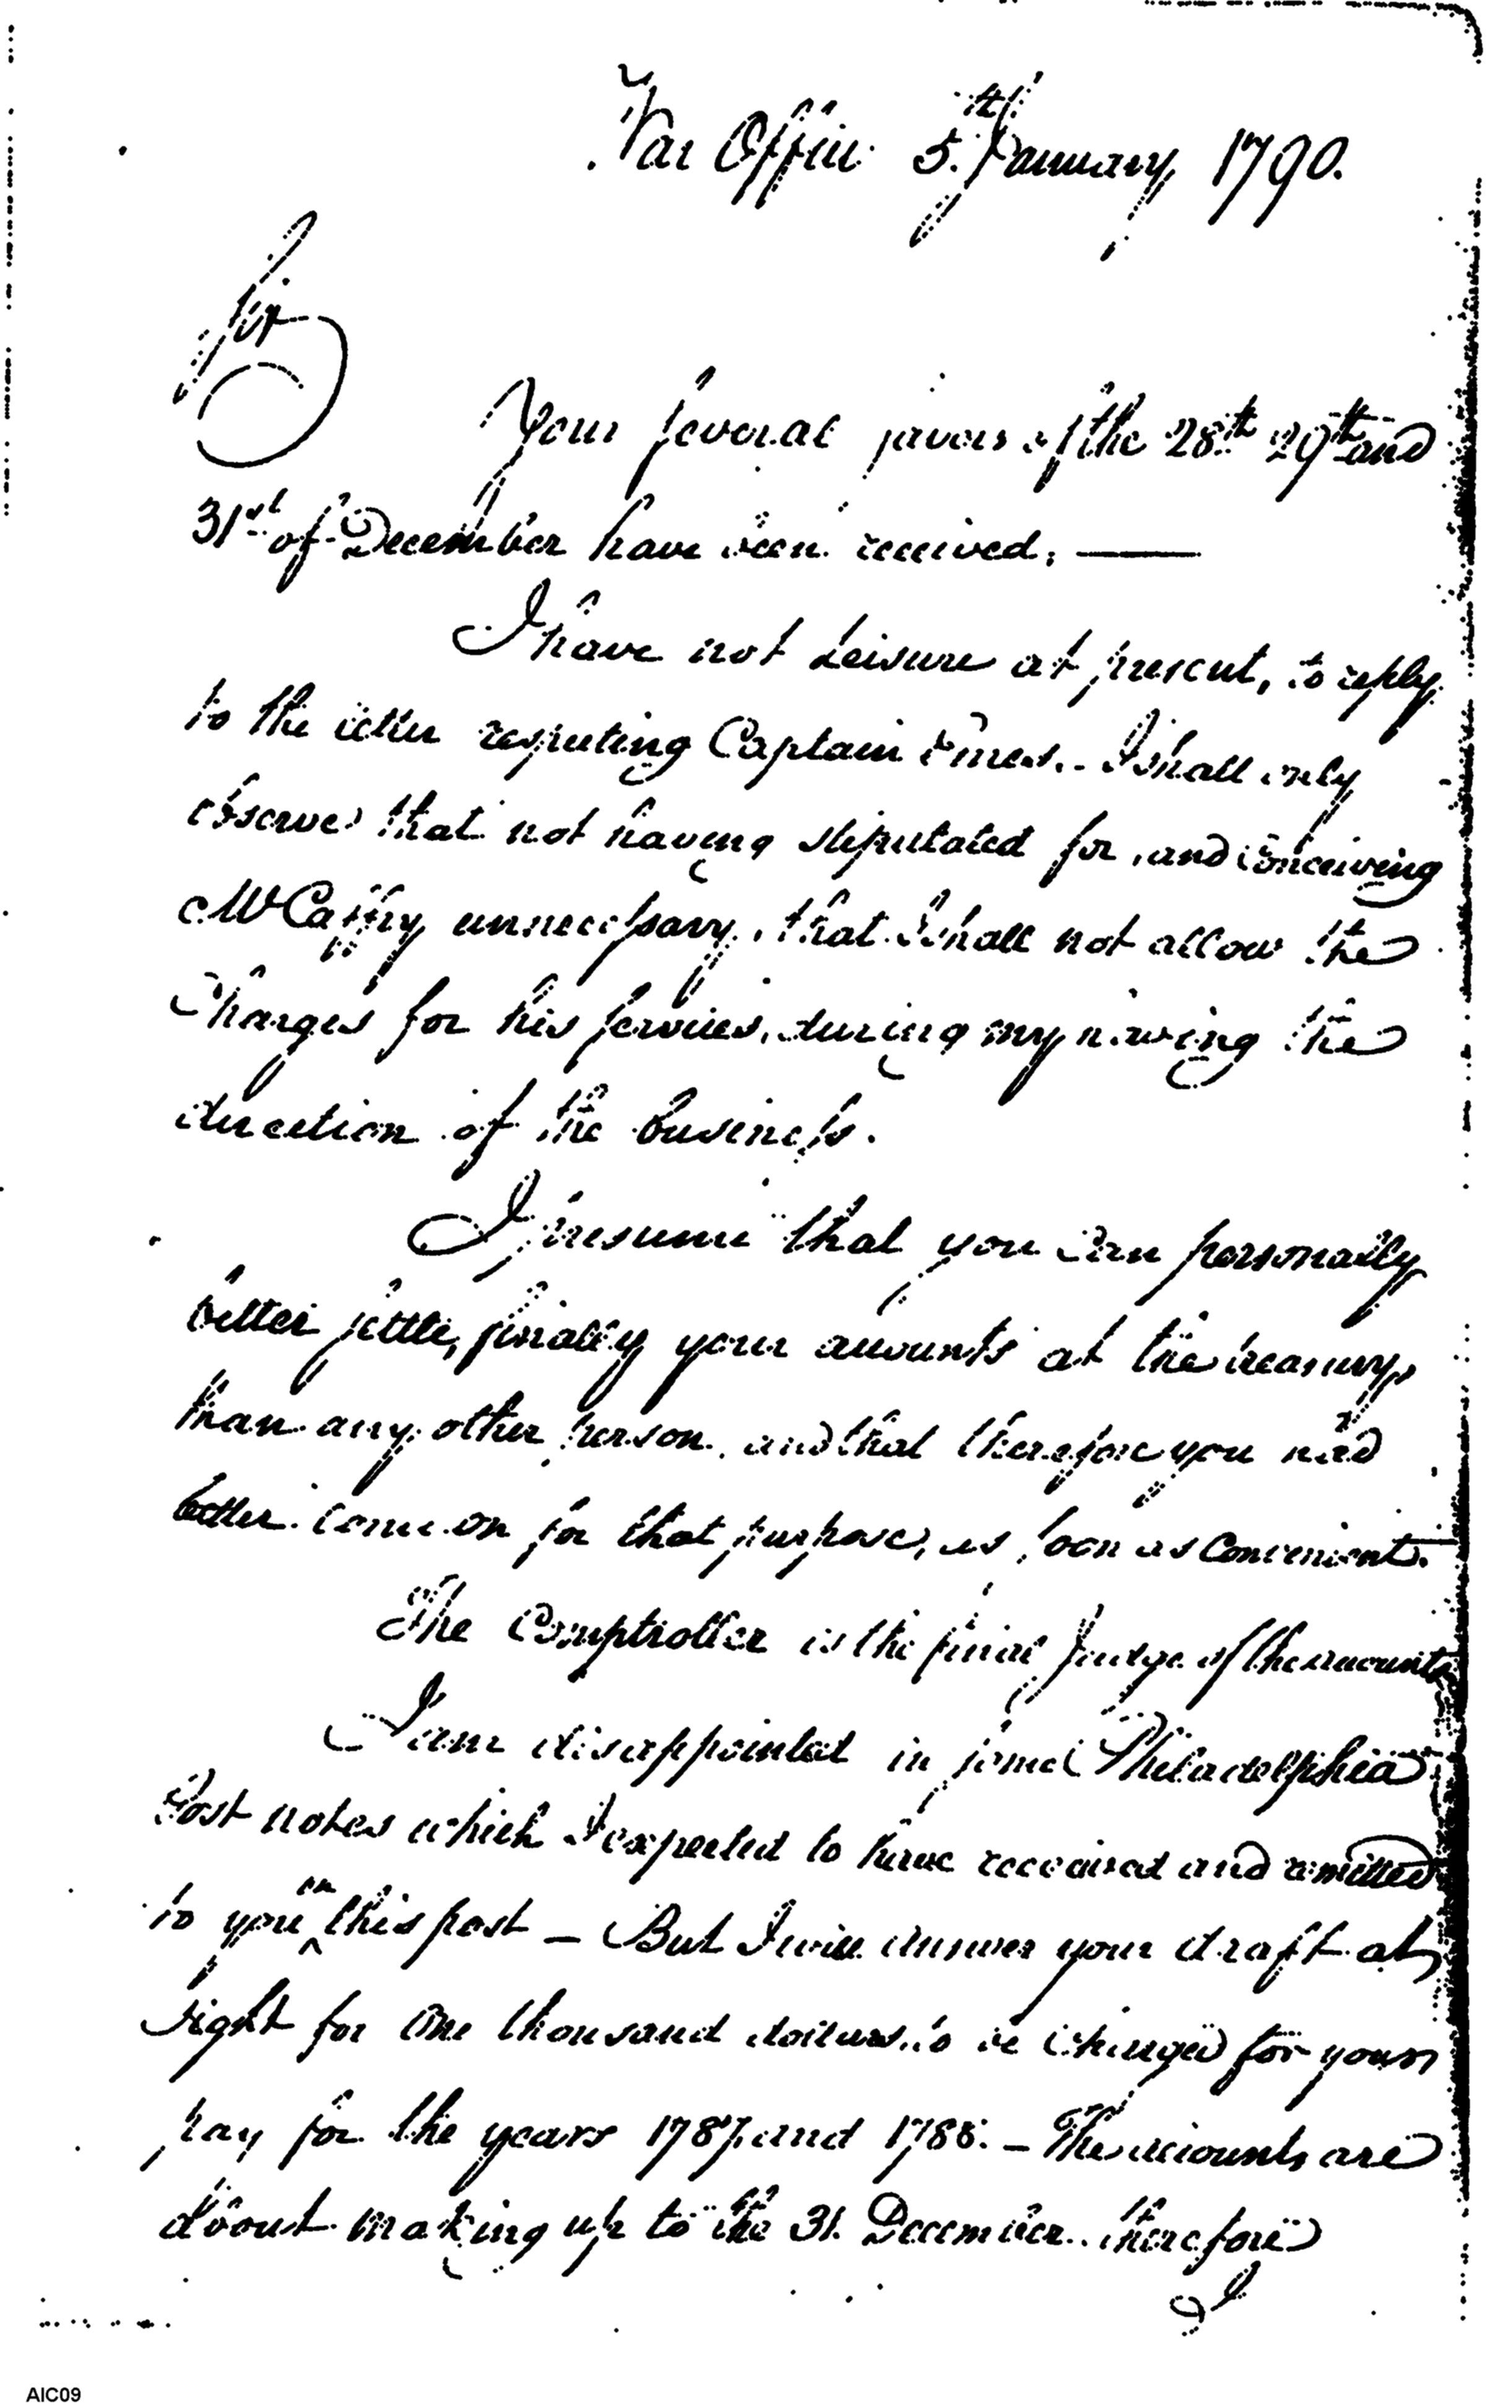 War Office 5th January 1790.
Sir
Your several favors of the 28th 29th and
31st of December have been received. —
I have not leisure at present, to reply
to the letter respecting Captain I shall only
observe that not having stipulated for, and conceiving
Mr Caffry unnecessary, that I shall not allow the
Charges for his services, during my having the
direction of the business.
I presume that you can personally
better settle, finally your accounts at the treasury,
than any other person, and that therefore you had
better come on for that purpose, as soon as convenient.
The Comptroller is the final Judge of the accounts
I am disappointed in some Philadelphia
Post notes which I expected to have received and remitted
to you on this post — But I will answer your draft at
sight for One thousand dollars to be charged for your
pay for the years 1787, and 1788. — The accounts are
about making up to the 31. December. therefore
I
AIC09